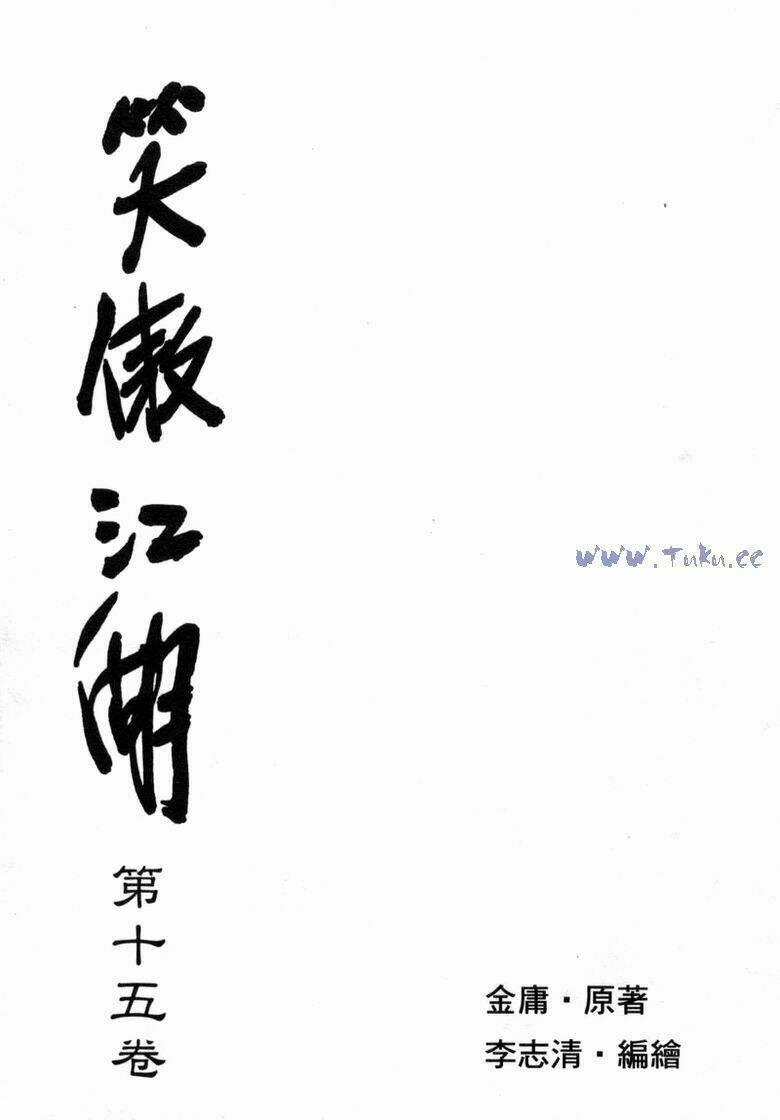 笑傲江湖
第十五卷
www.Tuku.cc
金庸·原著
李志清·編繪